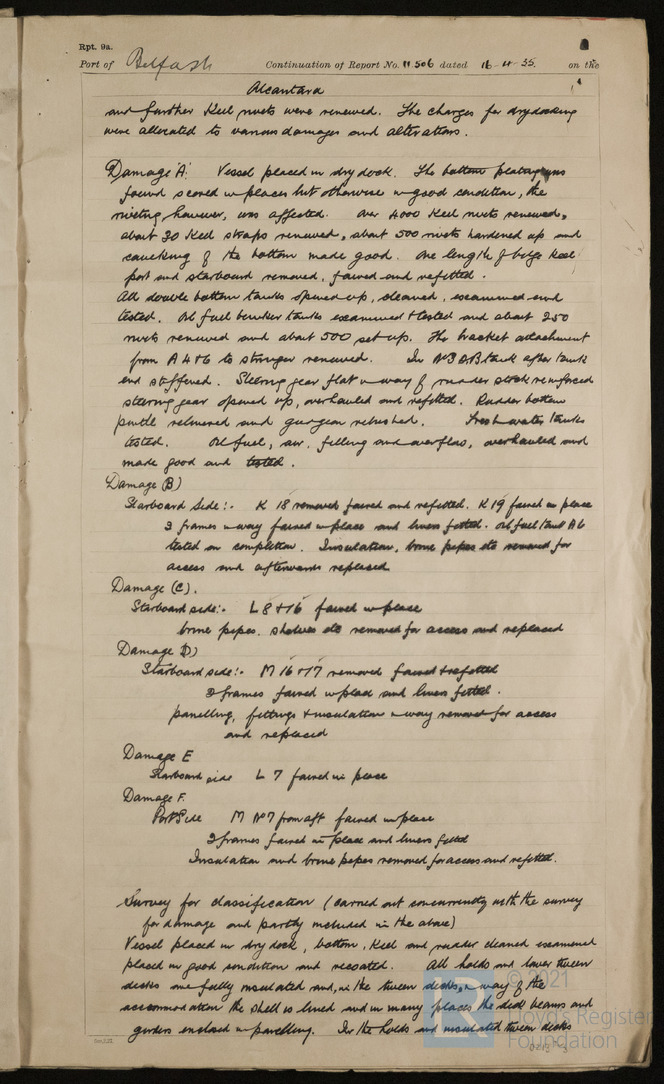 Rpt. 9a.
Port of Belfast Continuation of Report No. 11506 dated 16-4-35. on the
Alcantara
and further Keel rivets were renewed. The charges for drydocking
were allocated to various damages and alterations.
Damage 'A'. Vessel placed in dry dock. The bottom plating was
found scored in places but otherwise in good condition, the
riveting, however, was affected. Over 4000 Keel rivets renewed,
about 30 Keel straps renewed, about 500 rivets hardened up and
caulking of the bottom made good. One length of bilge keel
port and starboard removed, faired and refitted.
All double bottom tanks opened up, cleaned, examined and
tested. Oil fuel bunker tanks examined & tested and about 250
rivets renewed and about 500 set up. The bracket attachment
from A 4 & 6 to stringer renewed. In No 3 D.B. tank after tank
end stiffened. Steering gear flat in way of rudder stock reinforced
steering gear opened up, overhauled and refitted. Rudder bottom
pintle relinered and gudgeon rebushed. Fresh water tanks
tested. Oil fuel, air, filling and overflow, overhauled and
made good and tested.
Damage (B)
Starboard Side:- K 18 removed faired and refitted. K 19 faired in place
3 frames in way faired in place and liners fitted. Oil fuel tank A6
tested on completion. Insulation, brine pipes etc removed for
access and afterwards replaced
Damage (C).
Starboard side:- L 8 & 16 faired in place
brine pipes, shelves etc removed for access and replaced
Damage D)
Starboard side:- M 16 & 17 removed faired & refitted
2 frames faired in place and liners fitted.
panelling, fittings & insulation in way removed for access
and replaced
Damage E
Starboard side L 7 faired in place
Damage F.
Port Side M No 7 from aft faired in place
2 frames faired in place and liners fitted
Insulation and brine pipes removed for access and refitted.
Survey for classification (carried out concurrently with the survey
for damage and partly included in the above)
Vessel placed in dry dock, bottom, Keel and rudder cleaned examined
placed in good condition and recoated. All holds and lower tween
decks are fully insulated and, in the tween decks, in way of the
accommodation the shell is lined and in many places the deck beams and
girders enclosed in panelling. In the holds and insulated tween decks
© 2021
Lloyd's Register
Foundation